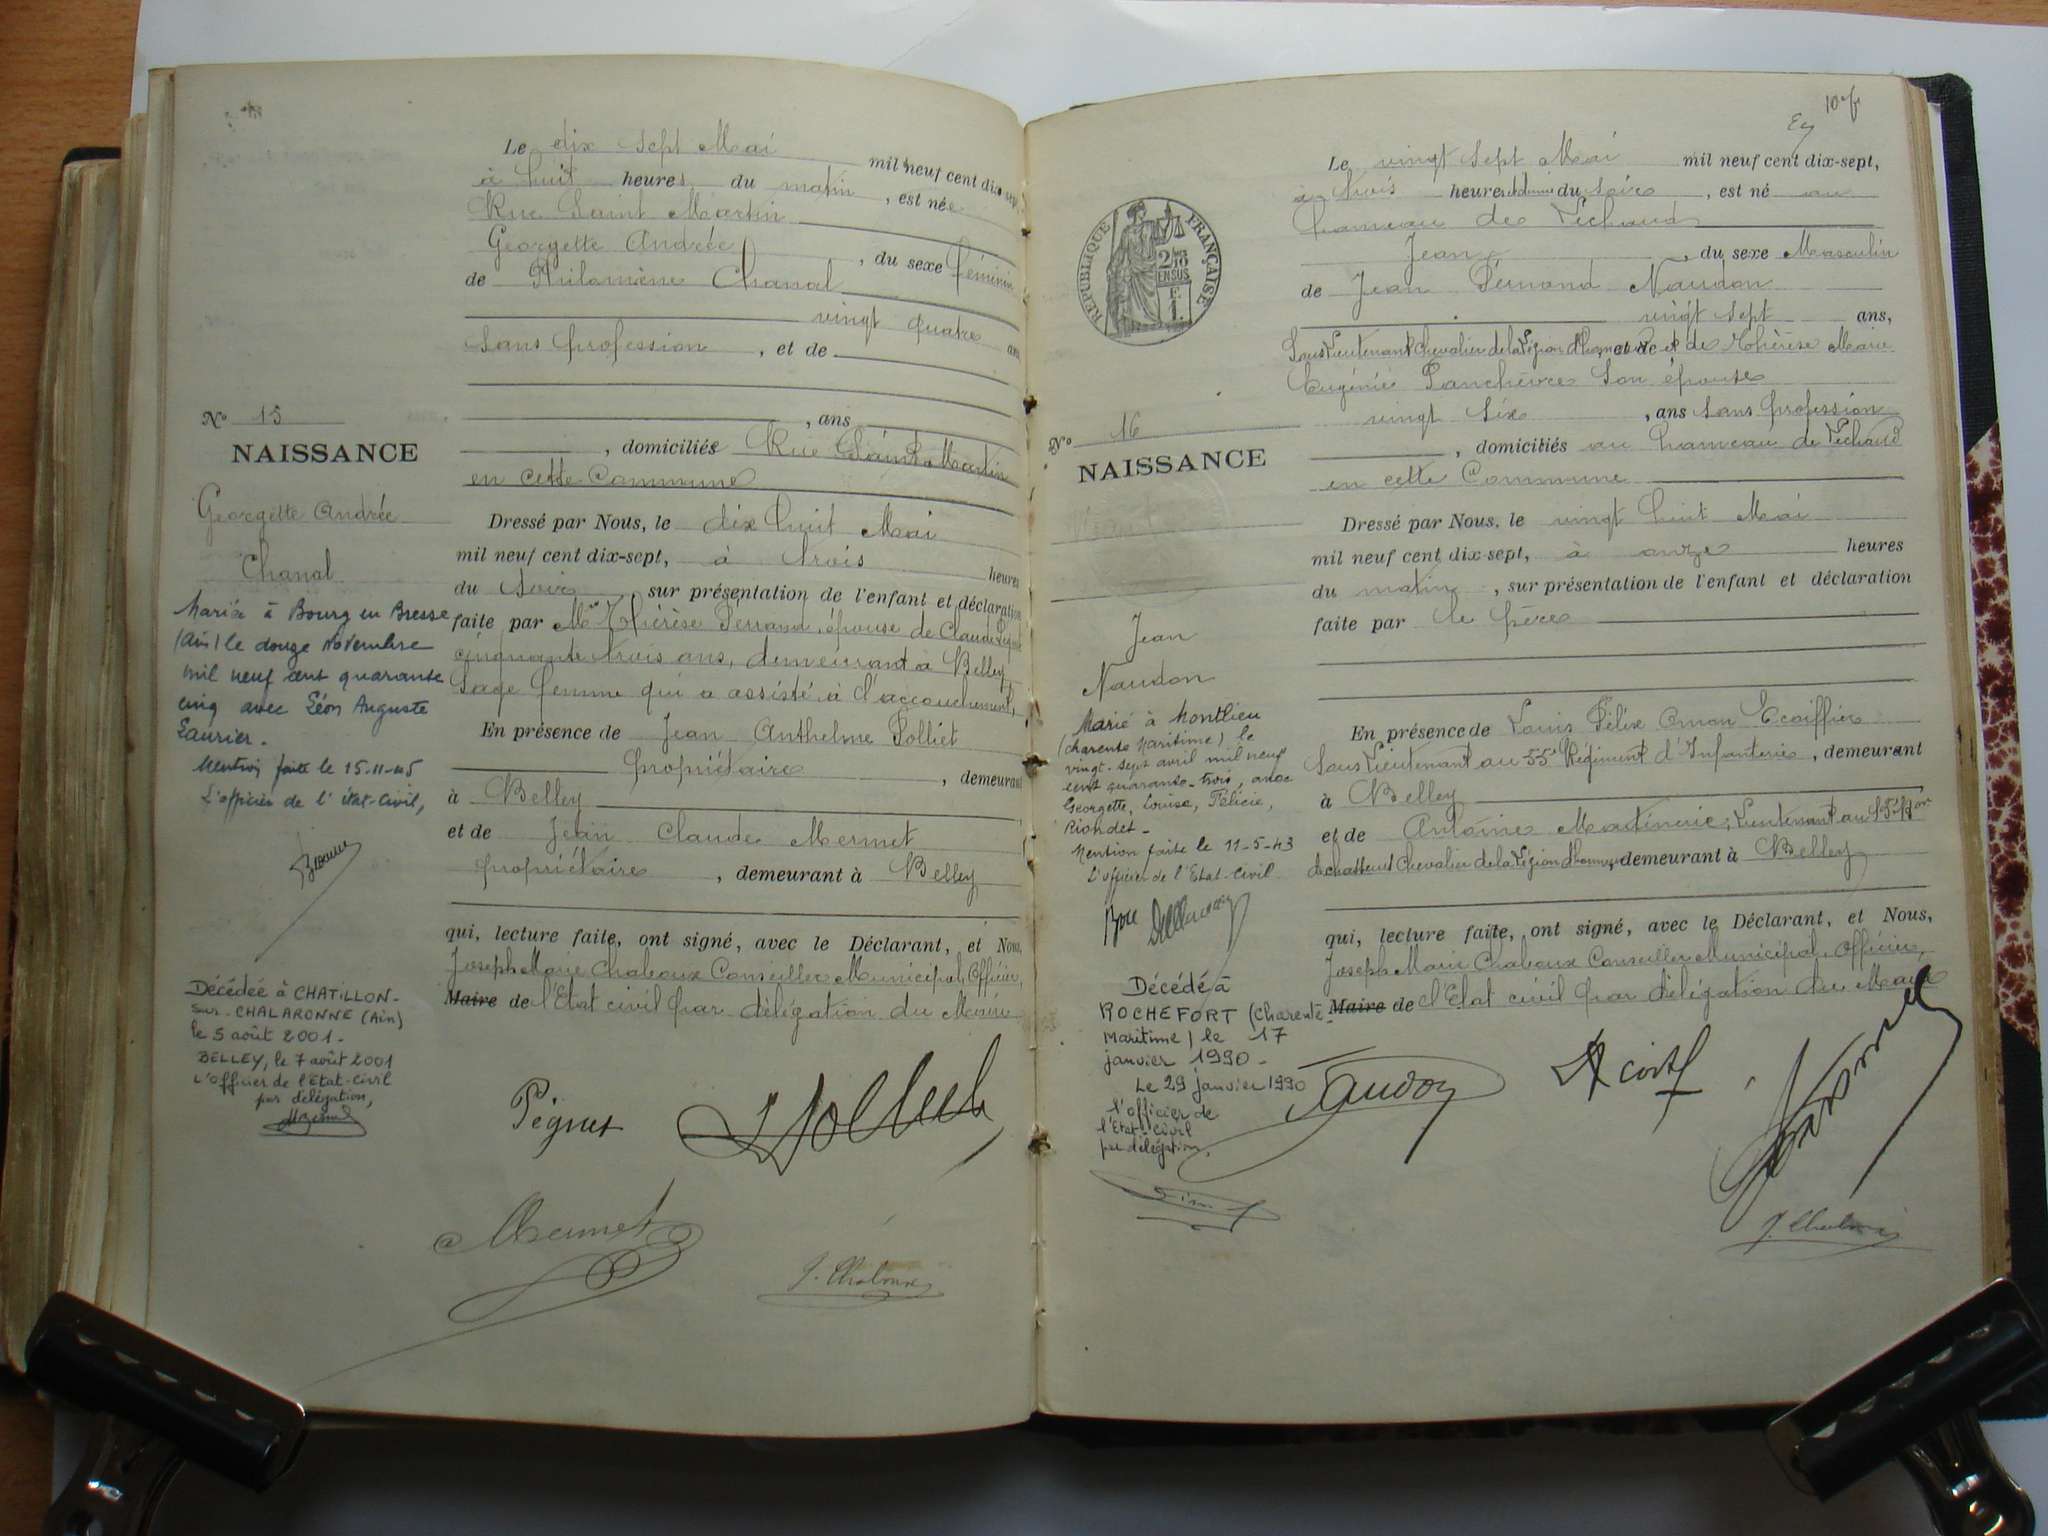 Le dix sept Mai mil neuf cent dix-sept,
à huit heures du matin, est née
Rue Saint Martin
Georgette Andrée, du sexe féminin
de Philomène Chanal
vingt quatre ans
sans profession, et de
, ans
, domiciliés Rue Saint Martin
en cette Commune
Dressé par Nous, le dix huit Mai
mil neuf cent dix-sept, à trois heures
du soir, sur présentation de l'enfant et déclaration
faite par Mme Thérèse Ferrand, épouse de Claude
cinquante trois ans, demeurant à Belley
Sage femme qui a assisté à l'accouchement,
En présence de Jean Anthelme Tolliet
propriétaire, demeurant
à Belley
et de Jean Claude Mermet
propriétaire, demeurant à Belley
qui, lecture faite, ont signé, avec le Déclarant, et Nous,
Joseph Marie Chaboux Conseiller Municipal, Officier,
Maire de l'Etat civil par délégation du Maire
Pégnet
Mermet
J. Chaboux
No 15
NAISSANCE
Georgette Andrée
Chanal
Mariée à Bourg en Bresse
(Ain) le douze Novembre
mil neuf cent quarante
cinq avec Léon Auguste
Laurier.
Mention faite le 15-11-45
L'officier de l'état-civil,
Décédée à CHATILLON-
sur-CHALARONNE (Ain)
le 5 août 2001-
BELLEY, le 7 août 2001
L'officier de l'état-civil
par délégation,
10 f
Le vingt sept Mai mil neuf cent dix-sept,
à trois heures du soir, est né au
hameau de Vechaud
Jean, du sexe Masculin
de Jean Fernand Naudon
vingt sept ans,
Sous Lieutenant Chevalier de la Légion d'honneur et de Thérèse Marie
Eugénie son épouse
vingt six, ans sans profession
, domiciliés au hameau de Vechaud
en cette Commune
Dressé par Nous, le vingt huit Mai
mil neuf cent dix-sept, à onze heures
du matin, sur présentation de l'enfant et déclaration
faite par le père
En présence de Louis Félix Aman Ecoiffier
Sous Lieutenant au 55e Régiment d'Infanterie, demeurant
à Belley
et de Antoine Martinerie, Lieutenant au
de chasseurs Chevalier de la Légion d'honneur, demeurant à Belley
qui, lecture faite, ont signé, avec le Déclarant, et Nous,
Joseph Marie Chaboux Conseiller Municipal, Officier,
Maire de l'Etat civil par délégation du Maire
Naudon
J. Chaboux
RÉPUBLIQUE FRANÇAISE
2/10
EN SUS
F.
1.
No 16
NAISSANCE
Jean
Naudon
Marié à Montlieu
(Charente Maritime) le
vingt-sept avril mil neuf
cent quarante-trois, avec
Georgette, Louise, Félicie,
Riondet-
Mention faite le 11-5-43
L'officier de l'Etat-Civil
Décédé à
ROCHEFORT (Charente-
Maritime) le 17
janvier 1990-
Le 29 janvier 1990
l'officier de
l'Etat-Civil
par délégation,